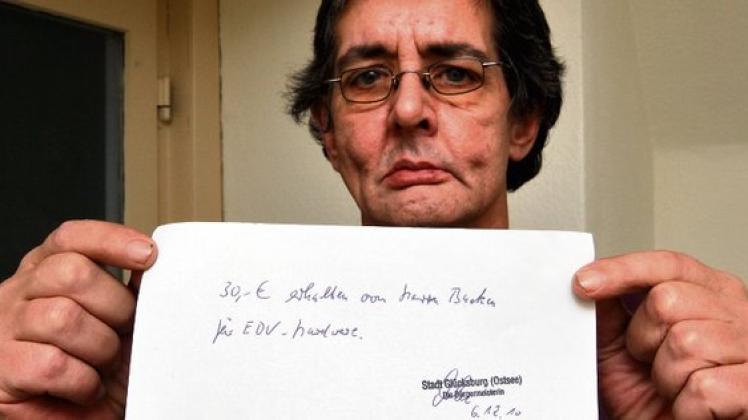 30,-€ erhalten von Herrn Backen
für EDV-Hardware.
Stadt Glücksburg (Ostsee)
Die Bürgermeisterin
6.12.10